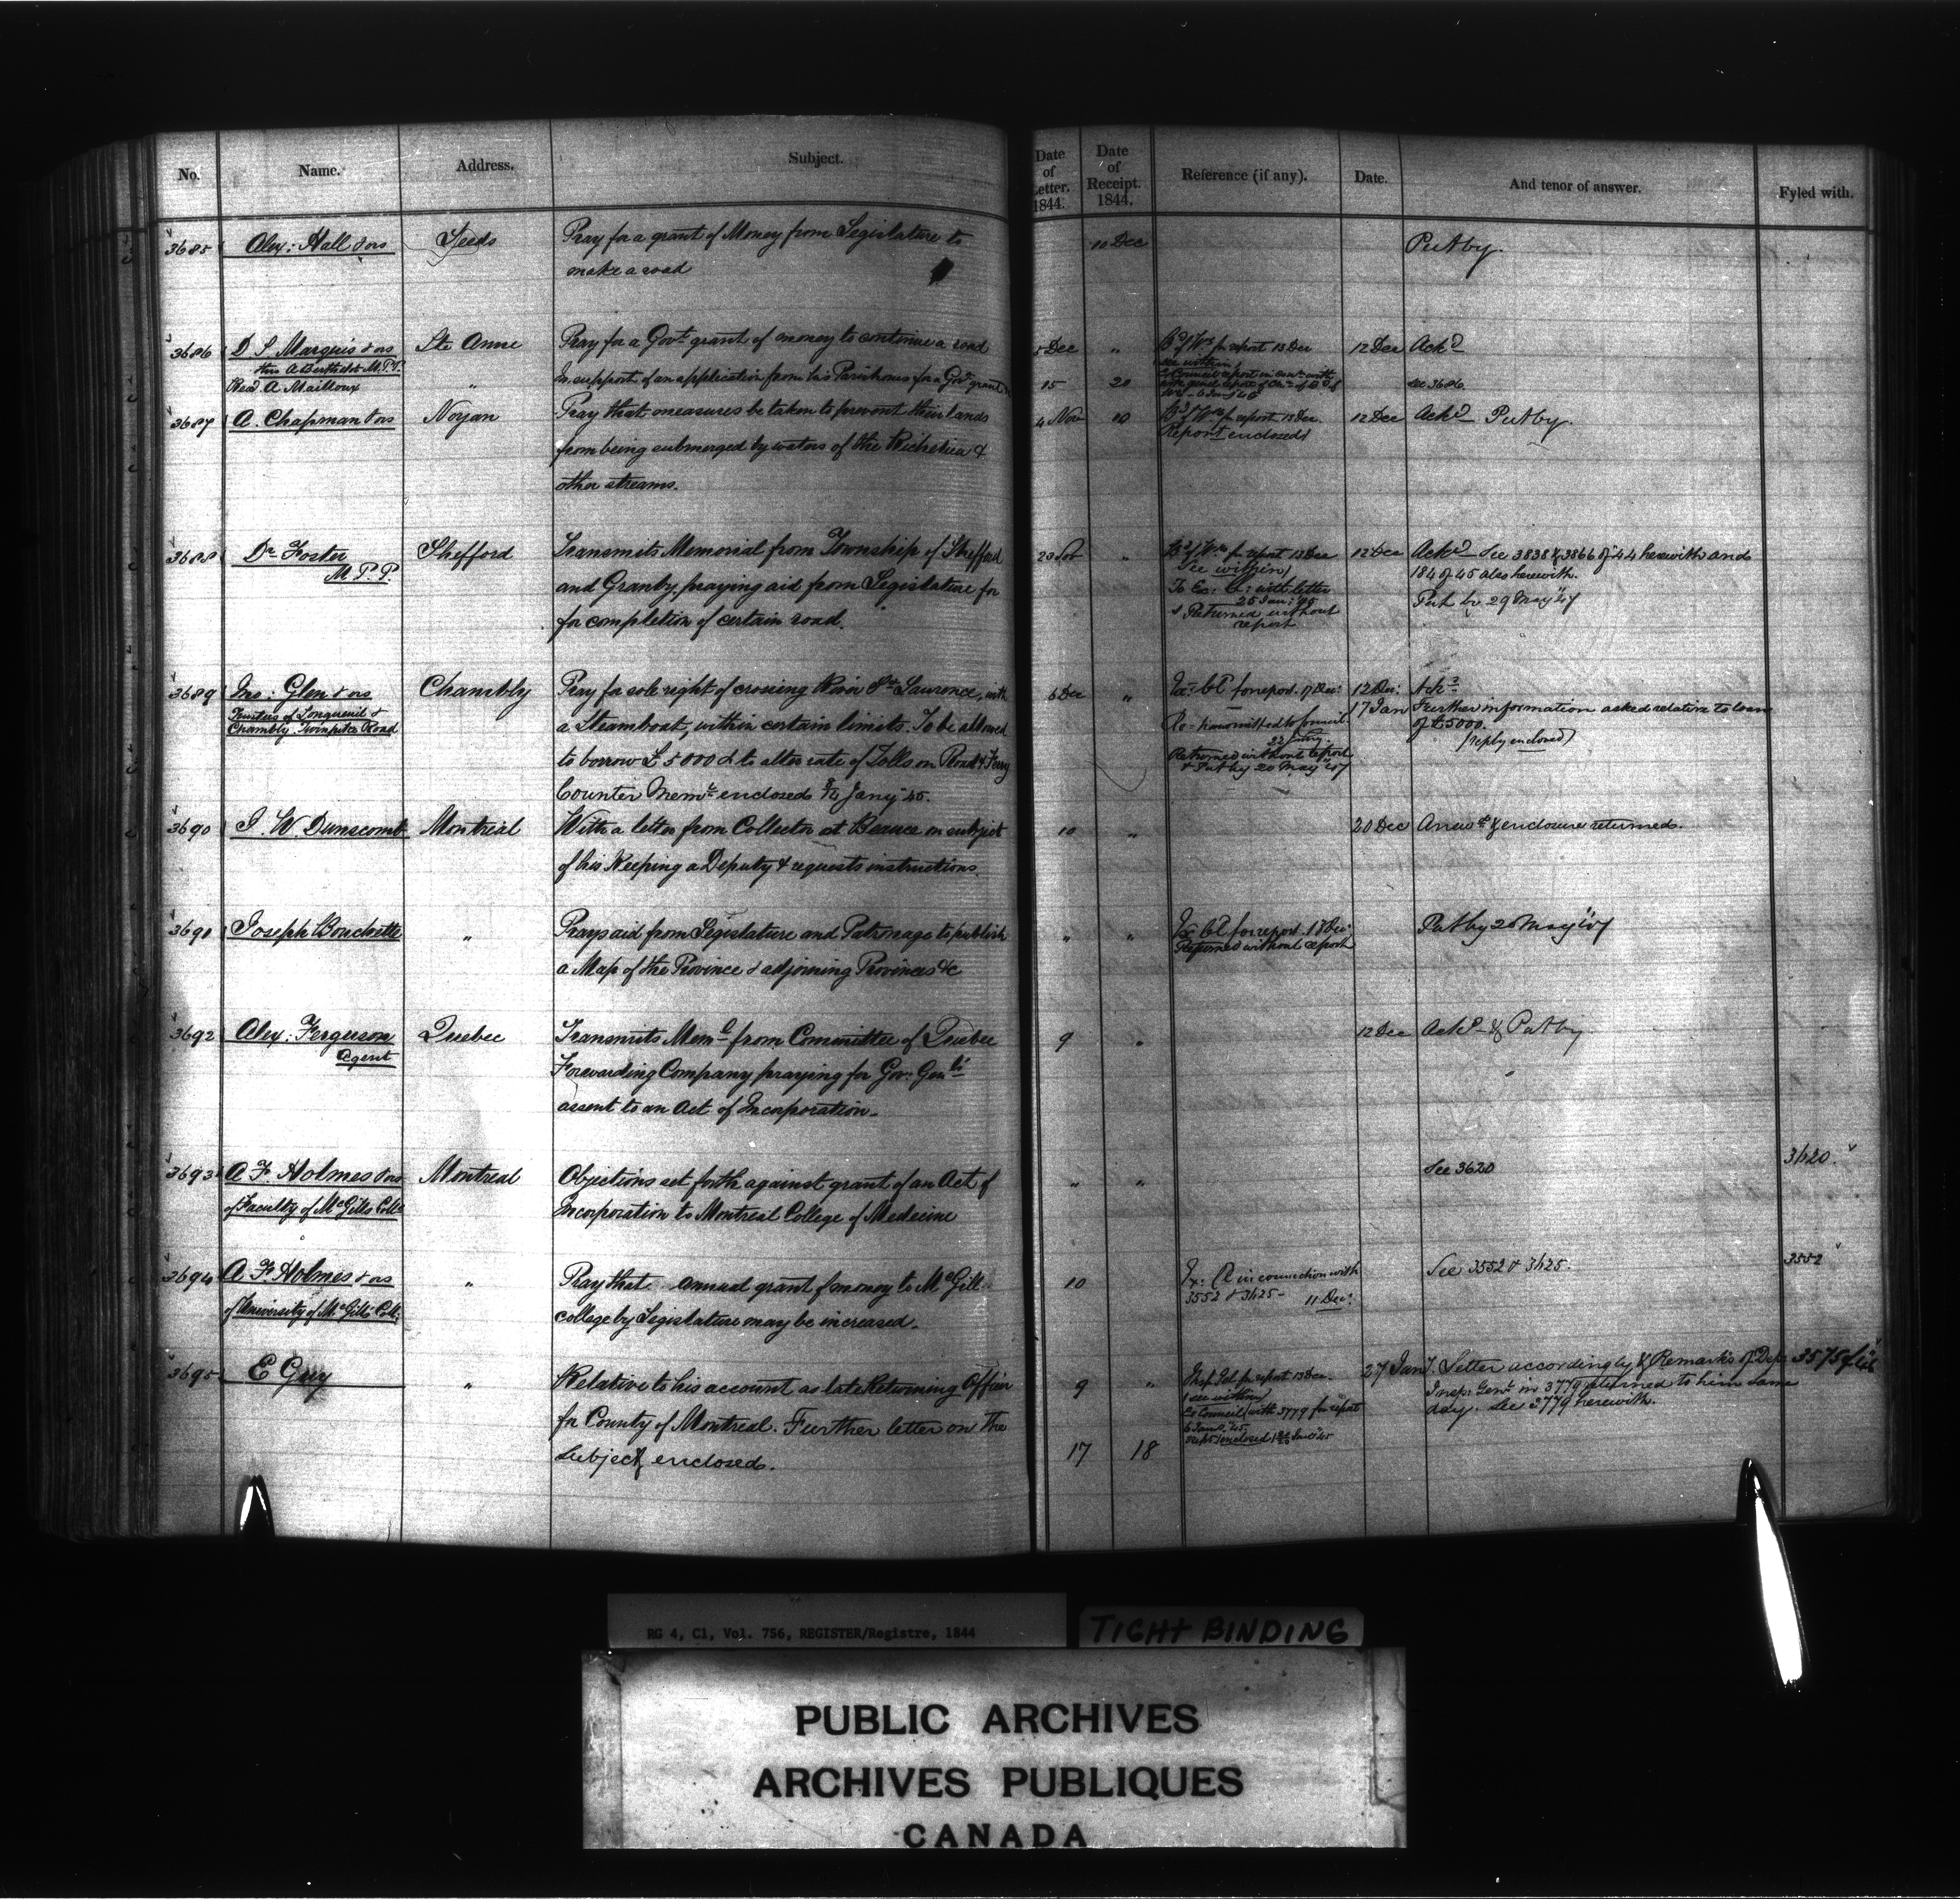 No. Name. Address. Subject. Date of Letter. 1844. Date of Receipt. 1844. Reference (if any). Date. And tenor of answer. Fyled with.
3685 Alex: Hall & ors Leeds Pray for a grant of Money from Legislature to 10 Dec Put by.
make a road
3686 D S Marquis & ors Ste Anne Pray for a Govt. grant of money to continue a road 5 Dec " for report 13 Dec 12 Dec Ackd
A Berthelot M.P.P. see within
Revd. A Mailloux " In support of an application from his Parishoners for a Govt grant 15 20 see 3686
3687 A. Chapman & ors Noyan Pray that measures be taken to prevent their lands 4 Nov 10 for report 13 Dec. 12 Dec Ackd Put by.
from being submerged by waters of the Richelieu & Report enclosed
other streams.
3688 Dr Foster Shefford Transmits Memorial from Township of Shefford 23 " for report 13 Dec 12 Dec Ackd See 3838 & 3866 of 44 herewith and
M.P.P. and Granby, praying aid from Legislature for See within 184 of 45 also herewith.
for completion of certain road. To Ex: C: with letter Put by 29 May 47
25 Jan: 45
& Returned without
report
3689 Jno: Glen & ors Chambly Pray for sole right of crossing River St Laurence, with 6 Dec " for report. 17 Dec: 12 Dec: Ackd
Trustees of Longueuil & a Steamboat, within certain limits. To be allowed 17 Jan Further information asked relative to loan
Chambly Turnpike Road to borrow £5000 & to alter rate of Tolls on Road & Ferry of £5000.
Counter Meml. enclosed Jany 45. Returned without report (reply enclosed)
& Put by 20 May 47
3690 J. W Dunscomb Montreal With a letter from Collector at Beauce on subject 10 " 20 Dec Answd & enclosure returned.
of his keeping a Deputy & requests instructions
3691 Joseph Bouchette " Prays aid from Legislature and Patronage to publish " " for report. 17 Dec: Put by 20 May 47
a Map of the Province & adjoining Provinces &c Returned without report
3692 Alex: Ferguson Quebec Transmits Meml from Committee of Quebec 9 " 12 Dec Ackd & Put by
Agent Forwarding Company praying for Gov: Genls'
assent to an Act of Incorporation.
3693 A F. Holmes & ors Montreal Objections set forth against grant of an Act of " " See 3620 3620.
of Faculty of McGills Colle Incorporation to Montreal College of Medecine
3694 A F Holmes & ors " Pray that annual grant of money to McGill 10 in connection with See 3552 & 3625. 3552
of University of McGills Coll: college by Legislature may be increased. 3552 & 3625 - 11 Dec:
3695 E Guy " Relative to his account as late Returning Officer 9 " Insp. Gel for report 13 Dec. 27 Jany. Letter accordingly & Remarks of Dep. 3575 of
for County of Montreal. Further letter on the see within Insp: Genl in 3779 returned to him same
subject enclosed. 17 18 To Council with 3779 for report day. See 3779 herewith.
RG 4, C1, Vol. 756, REGISTER/Registre, 1844
TIGHT BINDING
PUBLIC ARCHIVES
ARCHIVES PUBLIQUES
CANADA